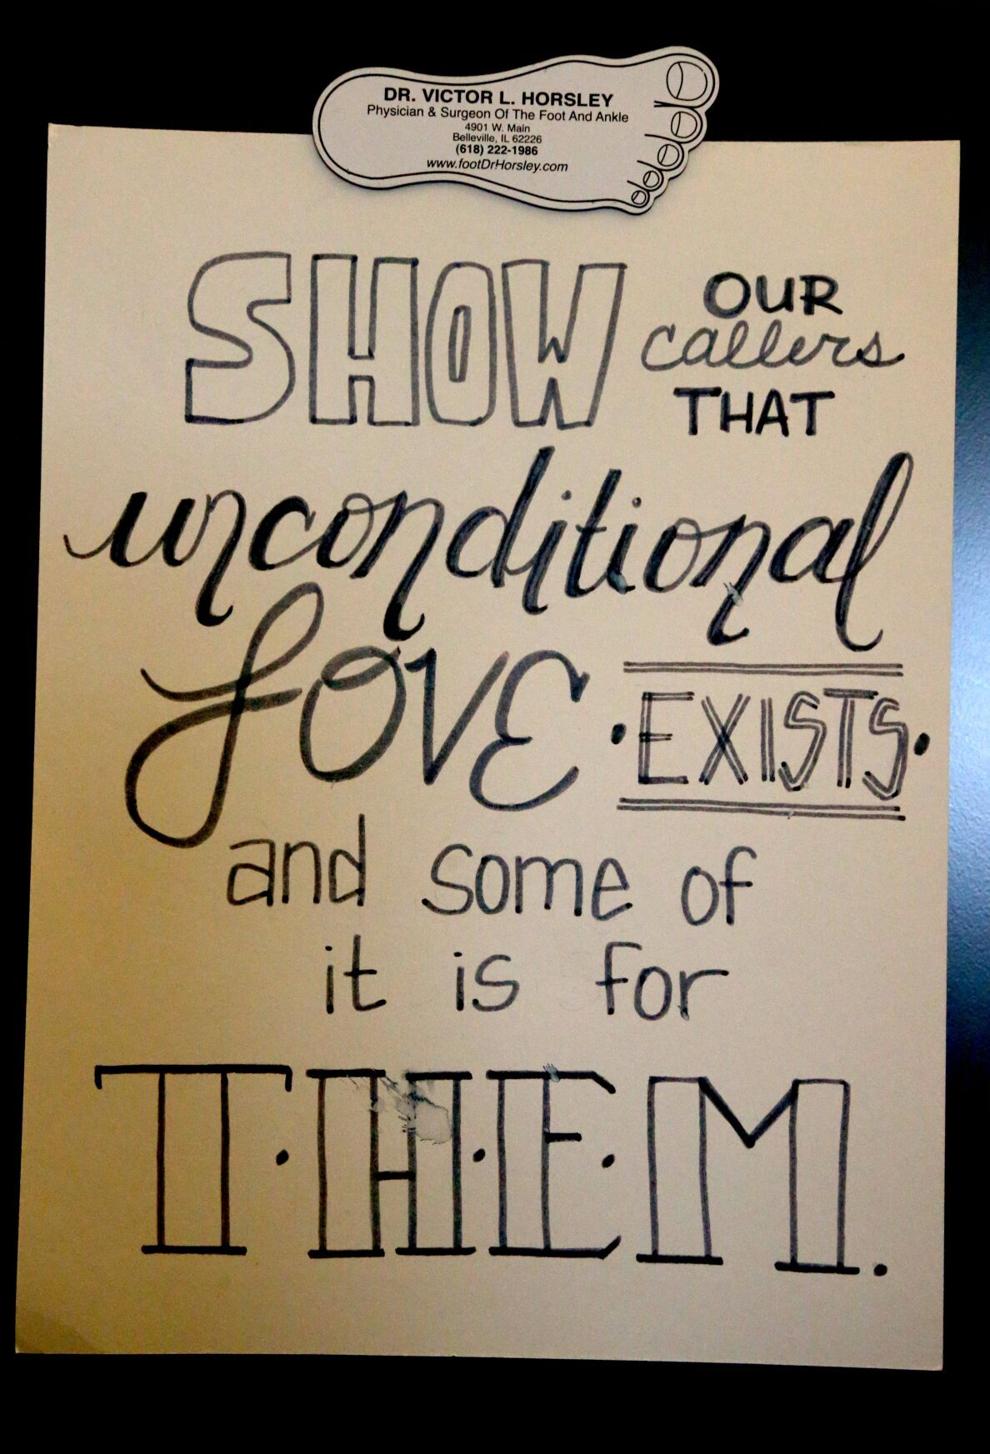 DR. VICTOR L. HORSLEY
Physician & Surgeon Of The Foot And Ankle
4901 W. Main
Belleville, IL 62226
(618) 222-1986
www.footDrHorsley.com
SHOW OUR
callers
THAT
unconditional
LOVE ·EXISTS·
and some of
it is for
T·H·E·M.